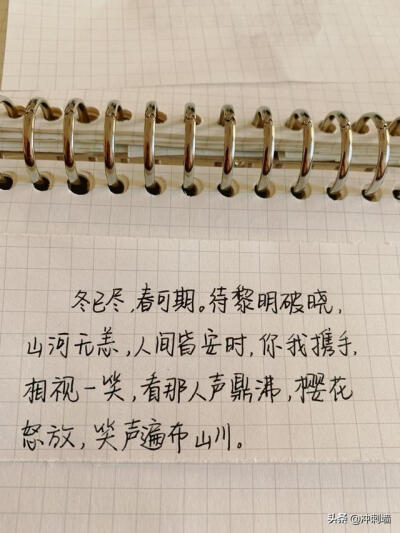 冬已尽,春可期。待黎明破晓,
山河无恙,人间皆安时,你我携手,
相视一笑,看那人声鼎沸,樱花
怒放,笑声遍布山川。
头条 @冲刺喵